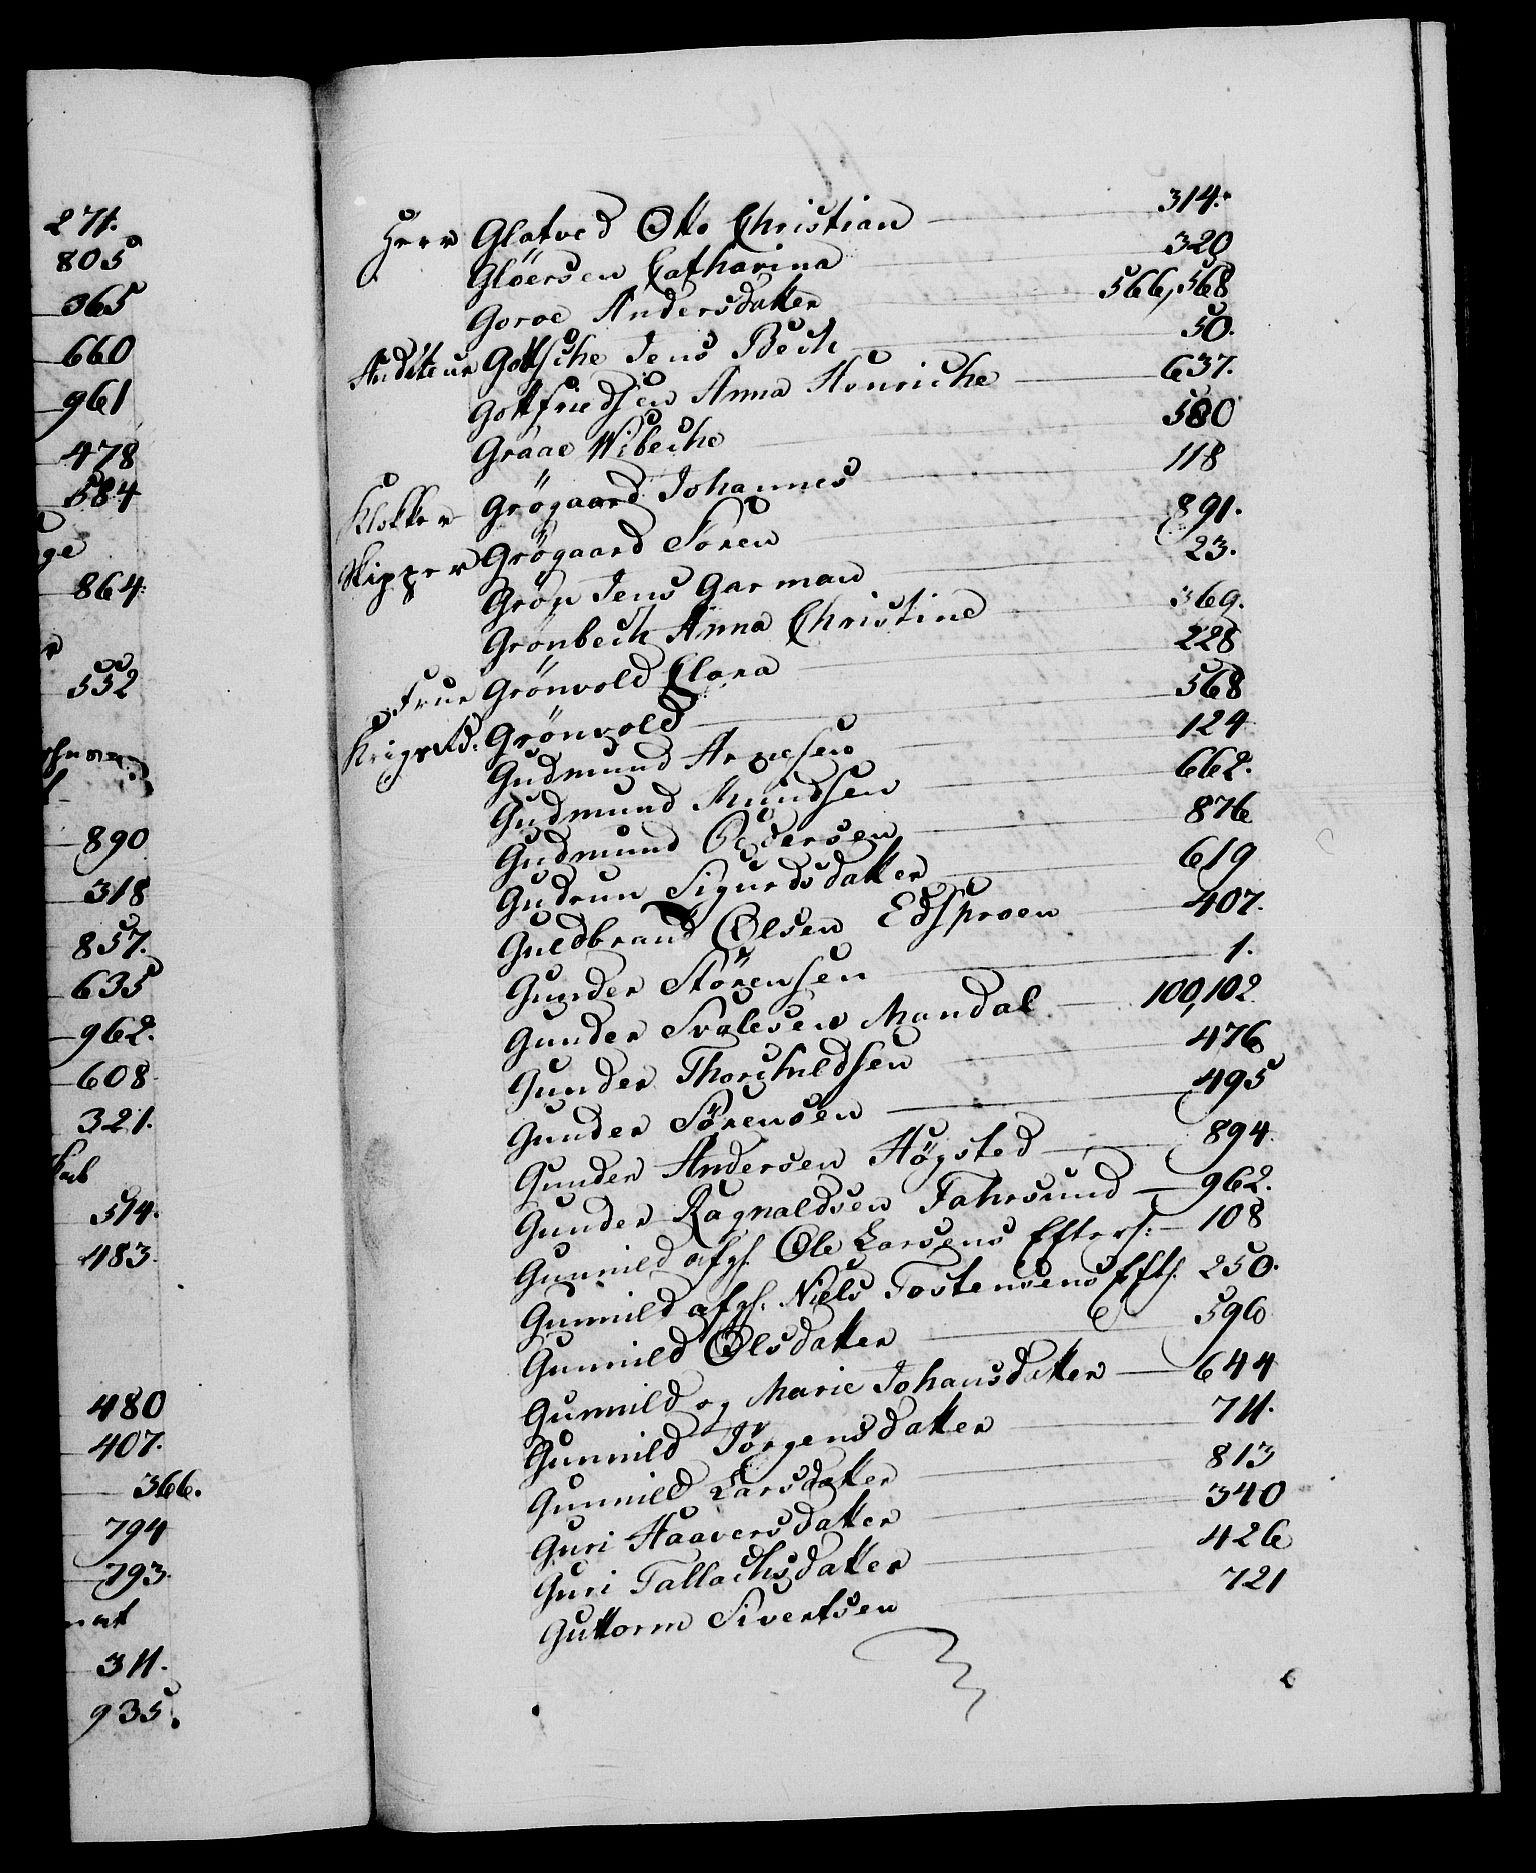 271.
805
365
660
961
478
584
ge
864.
552
890
318
857.
635
962.
608
321.
514.
483.
480
407.
366.
794
793.
311.
935.
Herr Glatved Otto Christian 314.
Glöersen Catharina 320
Goroe Andersdatter 566, 568
Auditeur Gottsche Jens Bech 50.
Gottfriedsen Anna Henriche 637.
Graae Wibeche 580
Klokker Grögaard Johannes 118
Skipper Grögaard Sören 891.
Grön Jens Garman 23.
Grönbech Anna Christine 369.
Frue Grönvold Clara 228
Krigsrd: Grönvold 568
Gudmund Arnesen 124
Gudmund Knudsen 662.
Gudmund Pedersen 876
Gudrun Sigurdsdatter 619
Guldbrand Olsen Edsproen 407.
Gunder Störensen 1.
Gunder Svalesen Mandal 100, 102
Gunder Thorchildsen 476
Gunder Sörensen 495
Gunder Andersen Högsted 894.
Gunder Ragnaldsen Fahrsund 962.
Gunnild afg. Ole Larsens Efterf: 108
Gunnild afg. Niels Tostensens Eftf. 250.
Gunnild Olsdatter 596
Gunnild og Marie Johansdatter 644
Gunnild Jörgensdatter 711.
Gunnild Larsdatter 813
Guri Haaversdatter 340
Guri Tallachsdatter 426
Guttorm Sivertsen 721